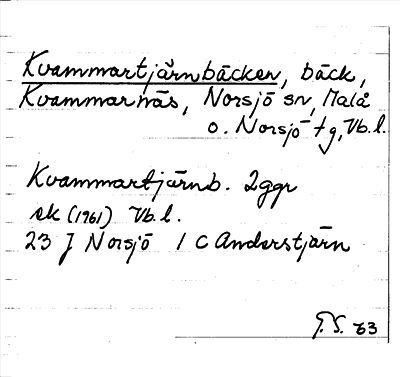 Kvammartjärnbäcken, bäck,
Kvammarnäs, Norsjö sn, Malå
o. Norsjö tg, Vb.l.
Kvammartjärnb. 2ggr
ek (1961) Vb.l.
23 J Norsjö 1 c Anderstjärn
G.S. 63